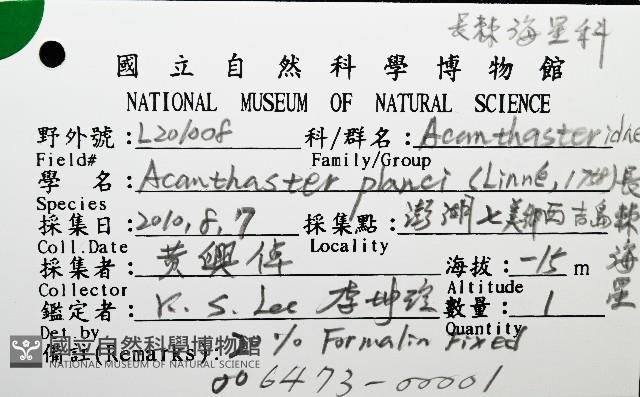 長棘海星科
國立自然科學博物館
NATIONAL MUSEUM OF NATURAL SCIENCE
野外號:L201008 科/群名:Acanthasteridae
Field# Family/Group
學 名:Acanthaster planci (Linné, 1758) 長棘海星
Species
採集日:2010,8,7 採集點:澎湖七美鄉西吉島
Coll.Date Locality
採集者:黃興倬 海拔:-15 m
Collector Altitude
鑑定者:K. S. Lee 李坤瑄 數量:1
Det.by Quantity
備註(Remarks): % Formalin Fixed
國立自然科學博物館
NATIONAL MUSEUM OF NATURAL SCIENCE
006473-00001